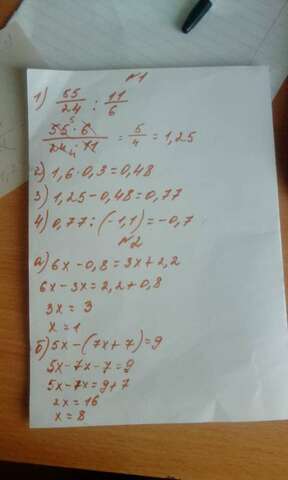 №1
1) 55/24 : 11/6
55·6/24·11 = 5/4 = 1,25
2) 1,6·0,3=0,48
3) 1,25-0,48=0,77
4) 0,77:(-1,1)=-0,7
№2
а) 6x-0,8=3x+2,2
6x-3x=2,2+0,8
3x=3
x=1
б) 5x-(7x+7)=9
5x-7x-7=9
5x-7x=9+7
2x=16
x=8